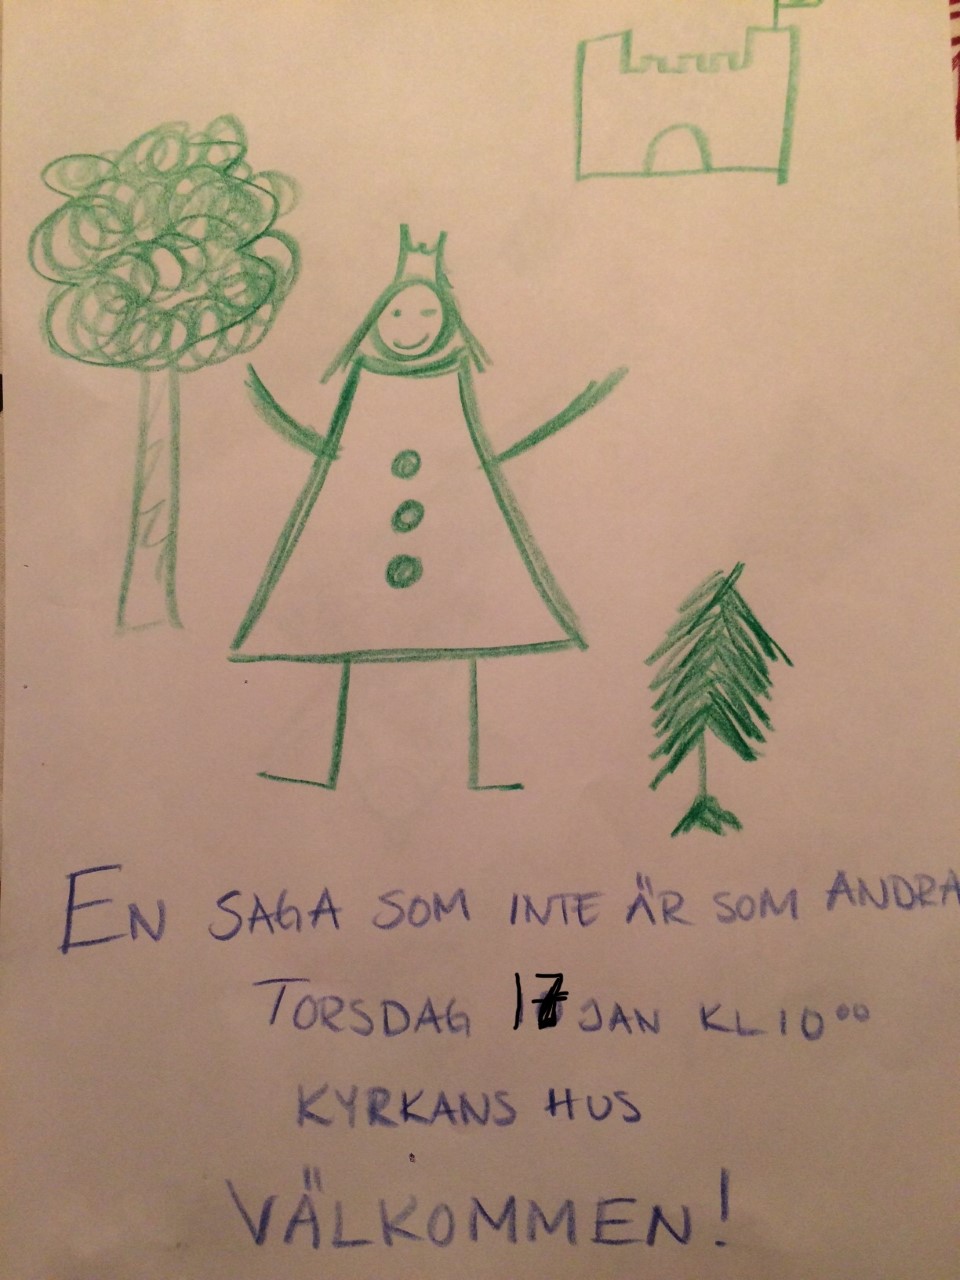 EN SAGA SOM INTE ÄR SOM ANDRA
TORSDAG 17 JAN KL 10⁰⁰
KYRKANS HUS
VÄLKOMMEN!